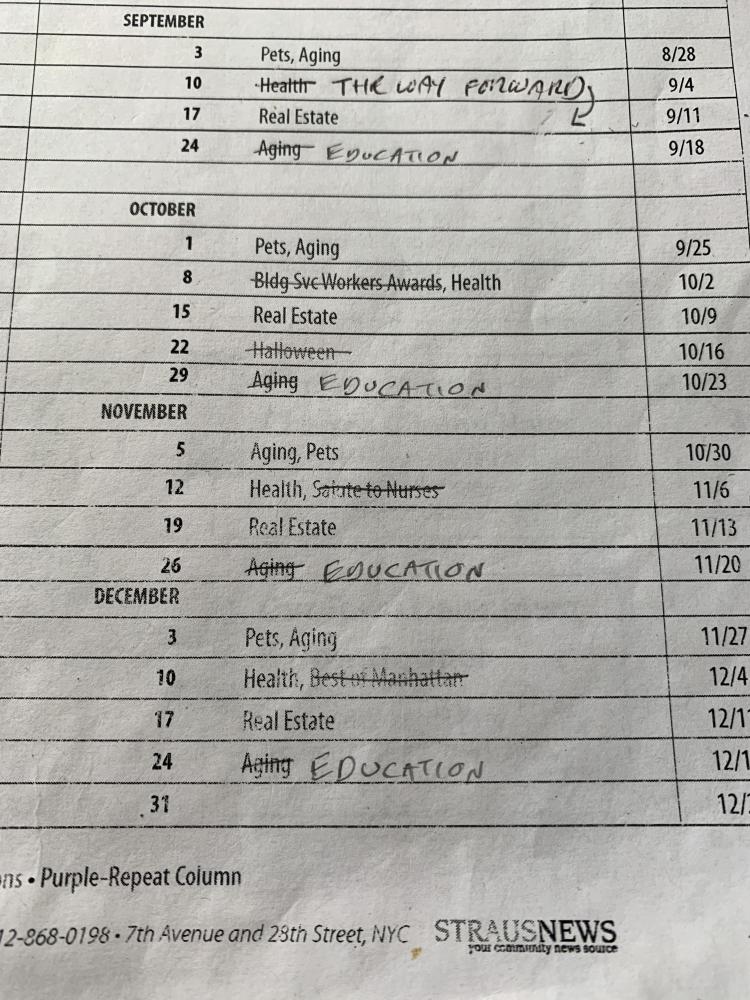 SEPTEMBER
3 Pets, Aging 8/28
10 Health THE WAY FORWARD 9/4
17 Real Estate 9/11
24 Aging EDUCATION 9/18
OCTOBER
1 Pets, Aging 9/25
8 Bldg Svc Workers Awards, Health 10/2
15 Real Estate 10/9
22 Halloween 10/16
29 Aging EDUCATION 10/23
NOVEMBER
5 Aging, Pets 10/30
12 Health, Salute to Nurses 11/6
19 Real Estate 11/13
26 Aging EDUCATION 11/20
DECEMBER
3 Pets, Aging 11/27
10 Health, Best of Manhattan 12/4
17 Real Estate 12/1
24 Aging EDUCATION 12/1
31 12/
ns • Purple-Repeat Column
12-868-0198 • 7th Avenue and 28th Street, NYC STRAUSNEWS
your community news source